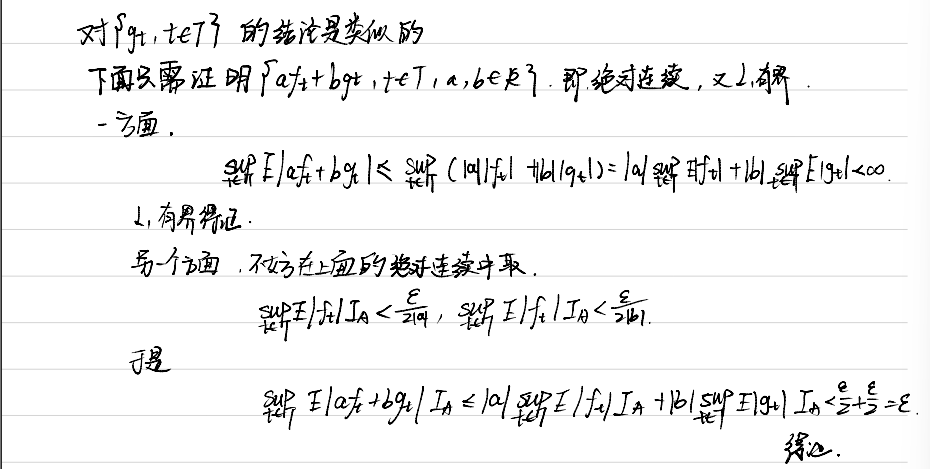 对{g_t, t∈T} 的结论是类似的
下面只需证明{af_t+bg_t, t∈T, a,b∈R}. 即绝对连续, 又L₁有界.
一方面.
sup_{t∈T} E|af_t+bg_t| ≤ sup_{t∈T} (|a||f_t| +|b||g_t|) = |a| sup_{t∈T} E|f_t| + |b| sup_{t∈T} E|g_t| < ∞.
L₁有界得证.
另一个方面, 不妨在上面的绝对连续中取.
sup_{t∈T} E|f_t|I_A < ε/2|a|, sup_{t∈T} E|f_t|I_A < ε/2|b|.
于是
sup_{t∈T} E|af_t+bg_t| I_A ≤ |a| sup_{t∈T} E|f_t|I_A + |b| sup_{t∈T} E|g_t| I_A < ε/2 + ε/2 = ε.
得证.